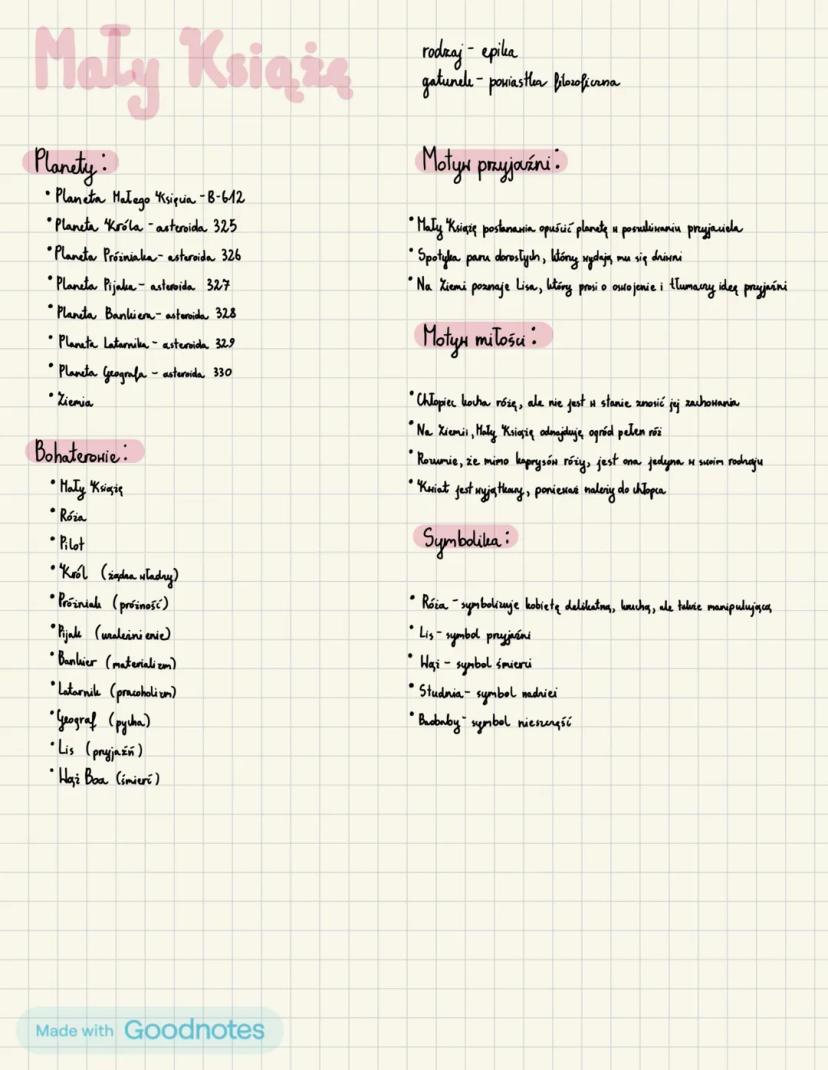 Mały Książę
rodzaj - epika
gatunek - powiastka filozoficzna
Planety:
• Planeta Małego Księcia - B-612
• Planeta Króla - asteroida 325
• Planeta Próżniaka - asteroida 326
• Planeta Pijaka - asteroida 327
• Planeta Bankiera - asteroida 328
• Planeta Latarnika - asteroida 329
• Planeta Geografa - asteroida 330
• Ziemia
Bohaterowie:
• Mały Książę
• Róża
• Pilot
• Król (żądza władzy)
• Próżniak (próżność)
• Pijak (uzależnienie)
• Bankier (materializm)
• Latarnik (pracoholizm)
• Geograf (pycha)
• Lis (przyjaźń)
• Wąż Boa (śmierć)
Motyw przyjaźni:
• Mały Książę postanawia opuścić planetę w poszukiwaniu przyjaciela
• Spotyka paru dorosłych, którzy wydają mu się dziwni
• Na Ziemi poznaje Lisa, który prosi o oswojenie i tłumaczy ideę przyjaźni
Motyw miłości:
• Chłopiec kocha różę, ale nie jest w stanie znosić jej zachowania
• Na Ziemii, Mały Książę odnajduję ogród pełen róż
• Rozumie, że mimo kaprysów róży, jest ona jedyna w swoim rodzaju
• Kwiat jest wyjątkowy, ponieważ należy do chłopca
Symbolika:
• Róża - symbolizuje kobietę delikatną, kruchą, ale także manipulującą
• Lis - symbol przyjaźni
• Wąż - symbol śmierci
• Studnia - symbol nadziei
• Baobaby - symbol nieszczęść
Made with Goodnotes